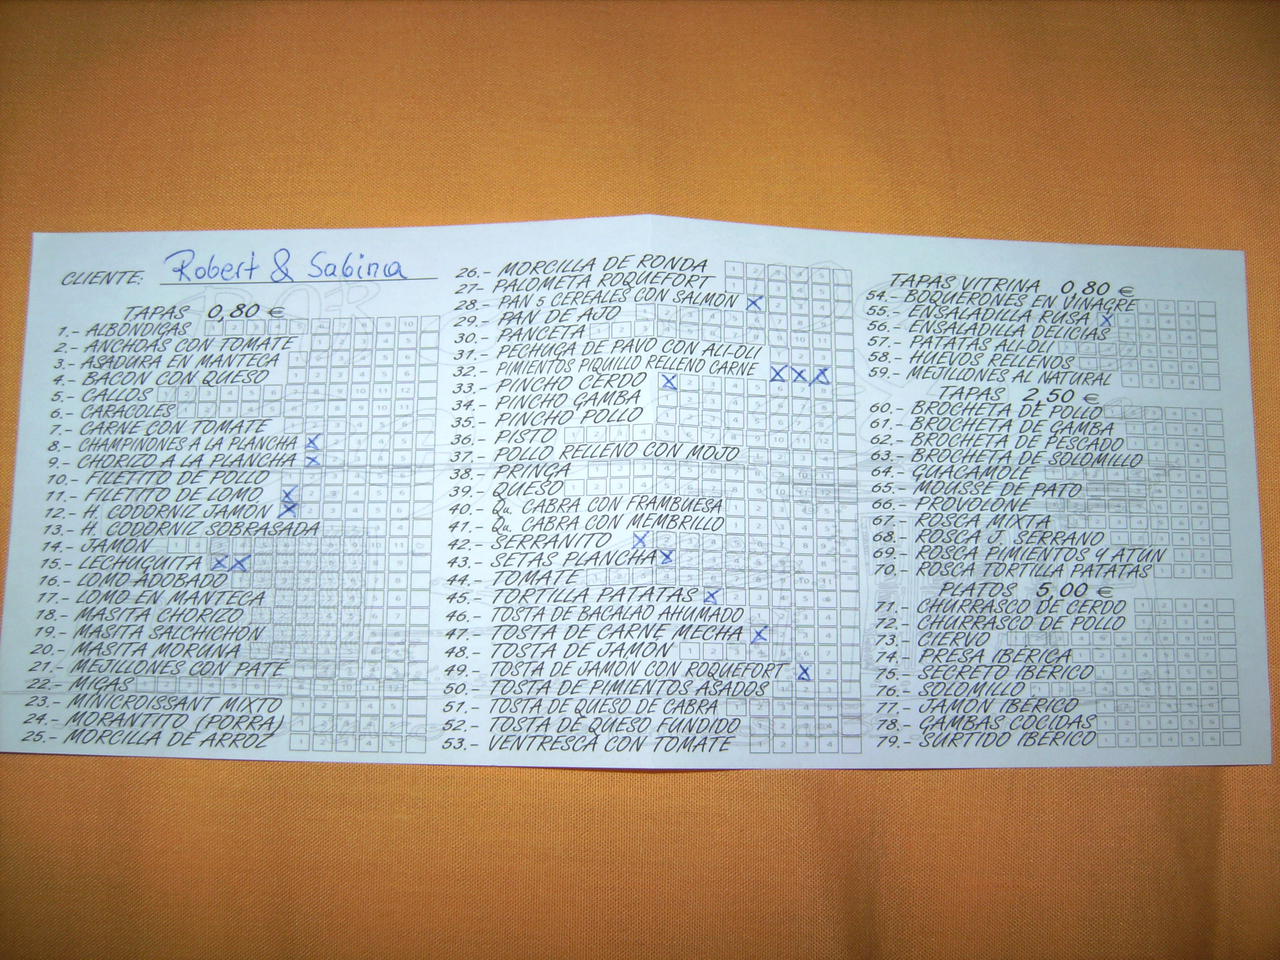 CLIENTE: Robert & Sabina
TAPAS 0,80 €
1.- ALBÓNDIGAS
2.- ANCHOAS CON TOMATE
3.- ASADURA EN MANTECA
4.- BACON CON QUESO
5.- CALLOS
6.- CARACOLES
7.- CARNE CON TOMATE
8.- CHAMPIÑONES A LA PLANCHA X
9.- CHORIZO A LA PLANCHA X
10.- FILETITO DE POLLO
11.- FILETITO DE LOMO X
12.- H. CODORNIZ JAMÓN X
13.- H. CODORNIZ SOBRASADA
14.- JAMÓN
15.- LECHUGUITA X X
16.- LOMO ADOBADO
17.- LOMO EN MANTECA
18.- MASITA CHORIZO
19.- MASITA SALCHICHÓN
20.- MASITA MORUNA
21.- MEJILLONES CON PATÉ
22.- MIGAS
23.- MINICROISSANT MIXTO
24.- MORANTITO (PORRA)
25.- MORCILLA DE ARROZ
26.- MORCILLA DE RONDA
27.- PALOMETA ROQUEFORT
28.- PAN 5 CEREALES CON SALMÓN X
29.- PAN DE AJO
30.- PANCETA
31.- PECHUGA DE PAVO CON ALI-OLI
32.- PIMIENTOS PIQUILLO RELLENO CARNE X X X
33.- PINCHO CERDO X
34.- PINCHO GAMBA
35.- PINCHO POLLO
36.- PISTO
37.- POLLO RELLENO CON MOJO
38.- PRINGÁ
39.- QUESO
40.- Qu. CABRA CON FRAMBUESA
41.- Qu. CABRA CON MEMBRILLO
42.- SERRANITO X
43.- SETAS PLANCHA X
44.- TOMATE
45.- TORTILLA PATATAS X
46.- TOSTA DE BACALAO AHUMADO
47.- TOSTA DE CARNE MECHÁ X
48.- TOSTA DE JAMÓN
49.- TOSTA DE JAMÓN CON ROQUEFORT X
50.- TOSTA DE PIMIENTOS ASADOS
51.- TOSTA DE QUESO DE CABRA
52.- TOSTA DE QUESO FUNDIDO
53.- VENTRESCA CON TOMATE
TAPAS VITRINA 0,80 €
54.- BOQUERONES EN VINAGRE
55.- ENSALADILLA RUSA X
56.- ENSALADILLA DELICIAS
57.- PATATAS ALI-OLI
58.- HUEVOS RELLENOS
59.- MEJILLONES AL NATURAL
TAPAS 2,50 €
60.- BROCHETA DE POLLO
61.- BROCHETA DE GAMBA
62.- BROCHETA DE PESCADO
63.- BROCHETA DE SOLOMILLO
64.- GUACAMOLE
65.- MOUSSE DE PATO
66.- PROVOLONE
67.- ROSCA MIXTA
68.- ROSCA J. SERRANO
69.- ROSCA PIMIENTOS Y ATÚN
70.- ROSCA TORTILLA PATATAS
PLATOS 5,00 €
71.- CHURRASCO DE CERDO
72.- CHURRASCO DE POLLO
73.- CIERVO
74.- PRESA IBÉRICA
75.- SECRETO IBÉRICO
76.- SOLOMILLO
77.- JAMÓN IBÉRICO
78.- GAMBAS COCIDAS
79.- SURTIDO IBÉRICO